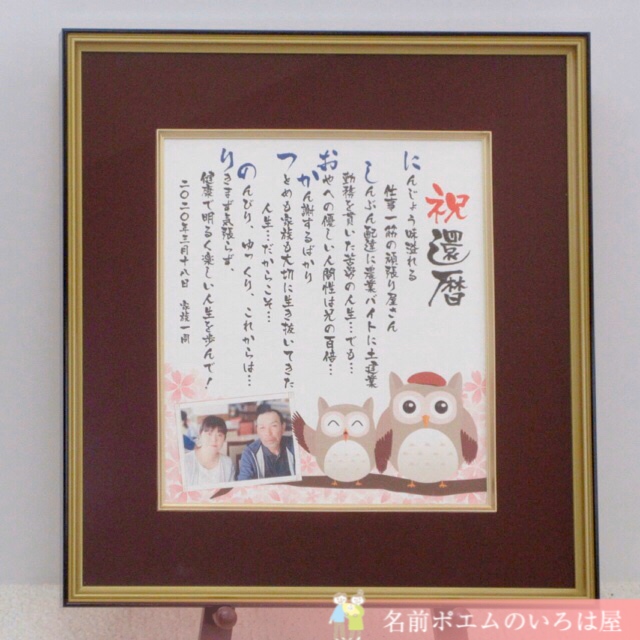 祝還暦
にんじょう味溢れる
仕事一筋の頑張り屋さん
しんぶん配達に農業バイトに土建業
勤務を貫いた苦労の人生…でも…
おやへの優しい人間性は兄の百倍…
かん謝するばかり
つとめも家族も大切に生き抜いてきた
人生…だからこそ…
のんびり、ゆっくり、これからは…
りきまず気張らず、
健康で明るく楽しい人生を歩んで!
二〇二〇年三月十八日 家族一同
名前ポエムのいろは屋